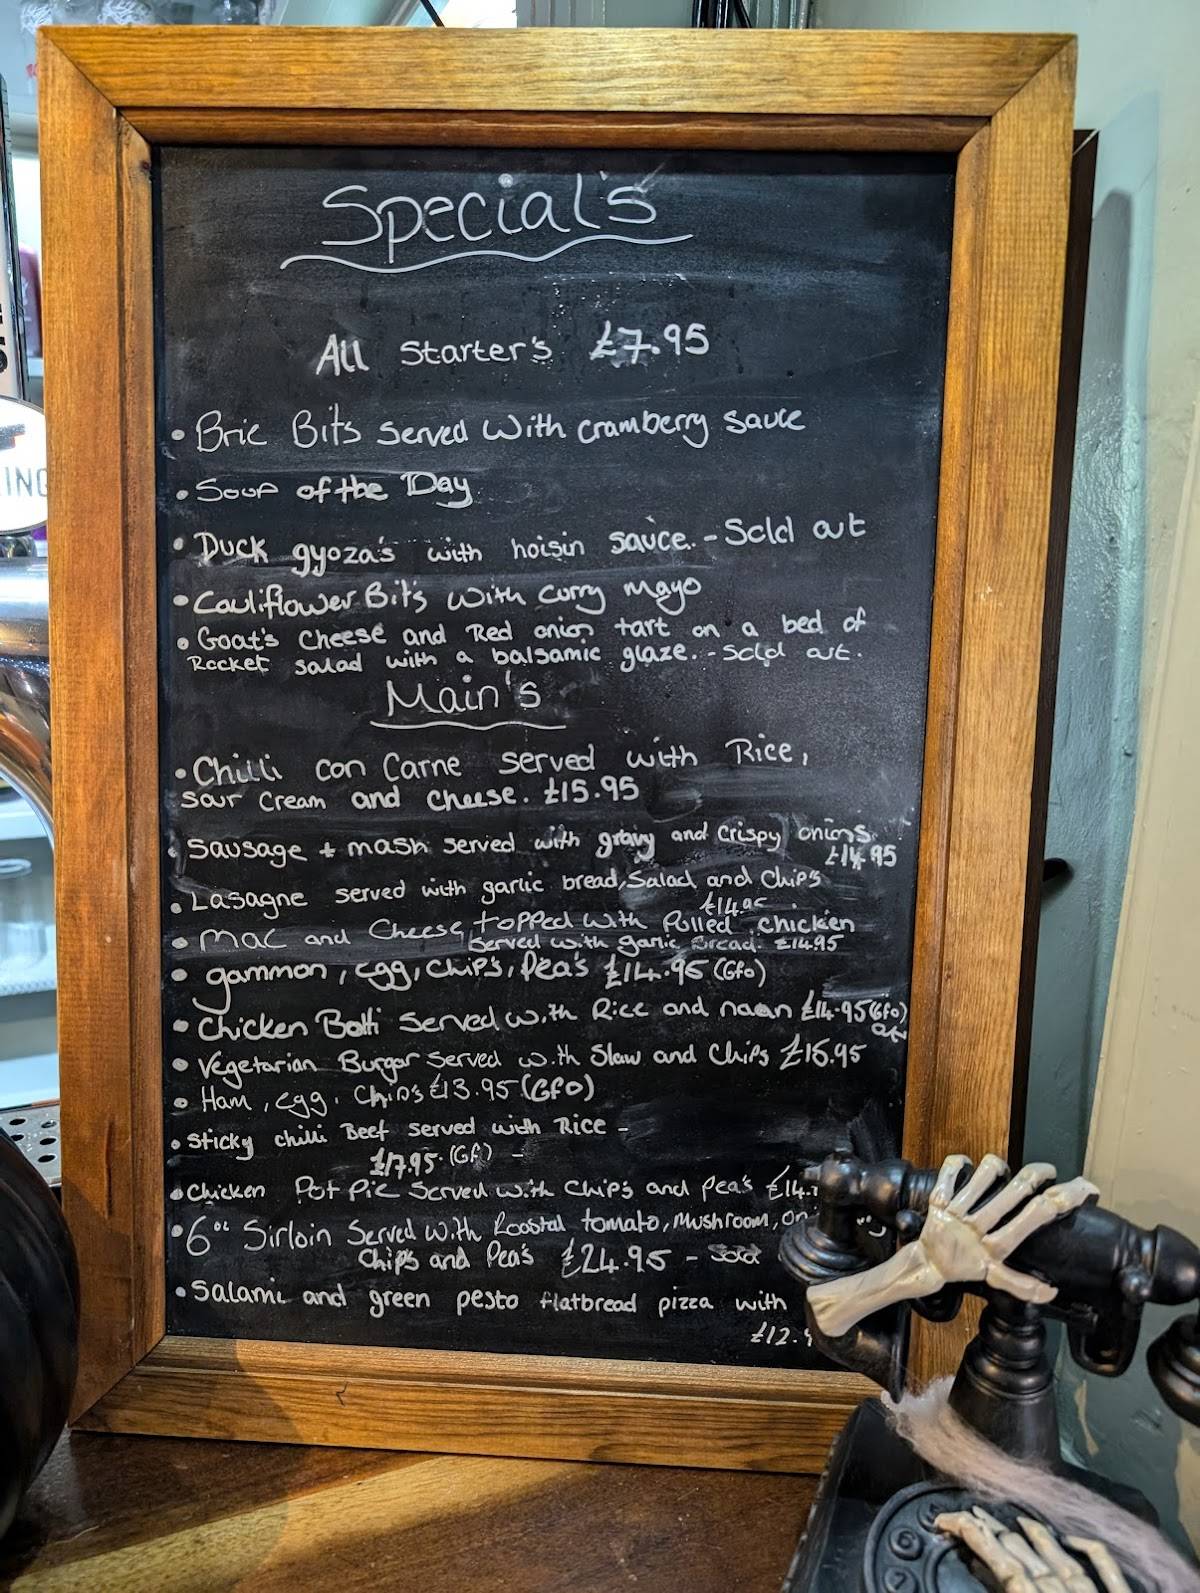 Special's
All Starter's £7.95
• Brie Bits served with cramberry sauce
• Soup of the Day
• Duck gyoza's with hoisin sauce. - Sold out
• Cauliflower Bit's with curry mayo
• Goat's Cheese and Red onion tart on a bed of
Rocket salad with a balsamic glaze. - Sold out.
Main's
• Chilli con Carne served with Rice,
Sour Cream and cheese. £15.95
• Sausage + mash served with gravy and crispy onions.
£14.95
• Lasagne served with garlic bread, Salad and Chip's
£14.95
• Mac and Cheese topped with Pulled chicken
served with garlic Bread. £14.95
• gammon, egg, chip's, Pea's £14.95 (Gfo)
• Chicken Balti served with Rice and naan £14.95 (Gfo)
• Vegetarian Burger served with Slaw and Chips £15.95
• Ham, egg, Chip's £13.95 (GFO)
• Sticky chilli Beef served with Rice -
£17.95. (GF) -
• Chicken Pot Pie Served with Chip's and Pea's £14.
• 6oz Sirloin Served with tomato, Mushroom,
Chip's and Pea's £24.95 - Sold
• Salami and green pesto flatbread pizza with
£12.
ING